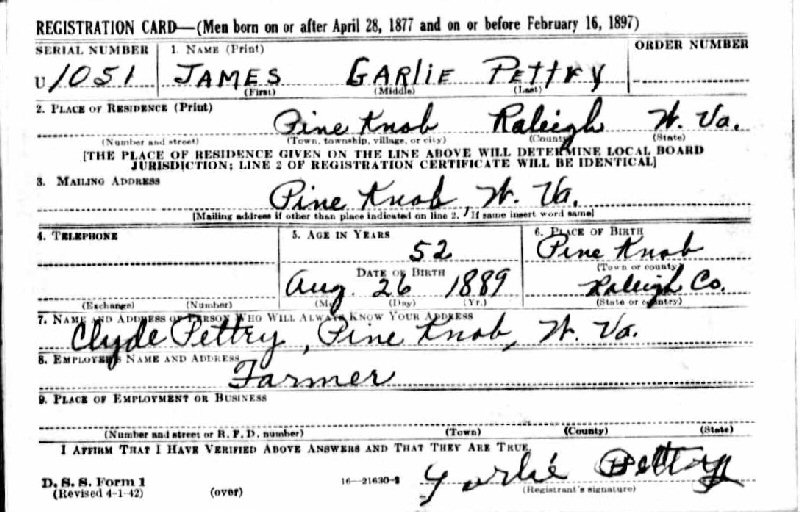 REGISTRATION CARD—(Men born on or after April 28, 1877 and on or before February 16, 1897)
SERIAL NUMBER 1. NAME (Print) ORDER NUMBER
U 1051 JAMES GARLIE PETTRY
(First) (Middle) (Last)
2. PLACE OF RESIDENCE (Print)
Pine Knob Raleigh W. Va.
(Number and street) (Town, township, village, or city) (County) (State)
[THE PLACE OF RESIDENCE GIVEN ON THE LINE ABOVE WILL DETERMINE LOCAL BOARD
JURISDICTION; LINE 2 OF REGISTRATION CERTIFICATE WILL BE IDENTICAL]
3. MAILING ADDRESS
Pine Knob, W. Va.
[Mailing address if other than place indicated on line 2. If same insert word same]
4. TELEPHONE 5. AGE IN YEARS 6. PLACE OF BIRTH
52 Pine Knob
DATE OF BIRTH (Town or county)
Aug. 26 1889 Raleigh Co.
(Exchange) (Number) (Mo.) (Day) (Yr.) (State or country)
7. NAME AND ADDRESS OF PERSON WHO WILL ALWAYS KNOW YOUR ADDRESS
Clyde Pettry, Pine Knob, W. Va.
8. EMPLOYER'S NAME AND ADDRESS
Farmer
9. PLACE OF EMPLOYMENT OR BUSINESS
(Number and street or R. F. D. number) (Town) (County) (State)
I AFFIRM THAT I HAVE VERIFIED ABOVE ANSWERS AND THAT THEY ARE TRUE.
D. S. S. Form 1
(Revised 4-1-42) (over) 16—21630-2 Garlie Pettry
(Registrant's signature)